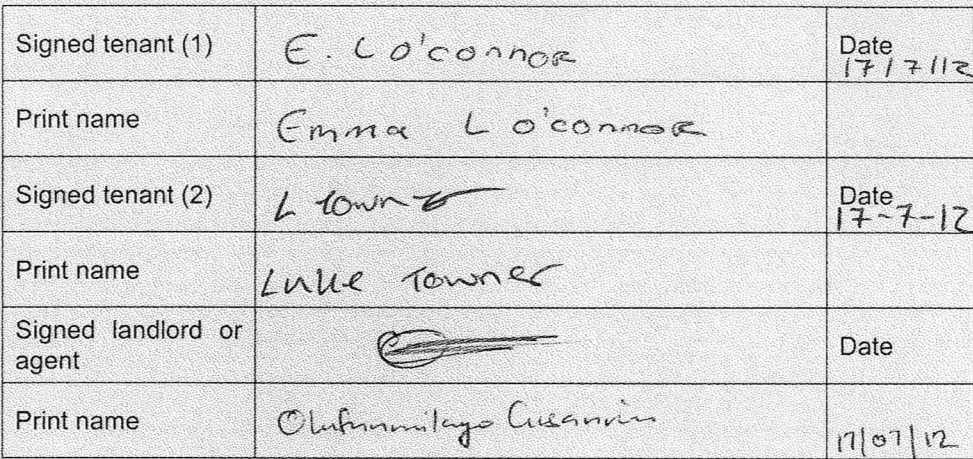 Signed tenant (1) E. L O'connor Date
17/7/12
Print name Emma L O'connor
Signed tenant (2) L Towner Date
17-7-12
Print name Luke Towner
Signed landlord or
agent Date
Print name Olufunmilayo
17/07/12